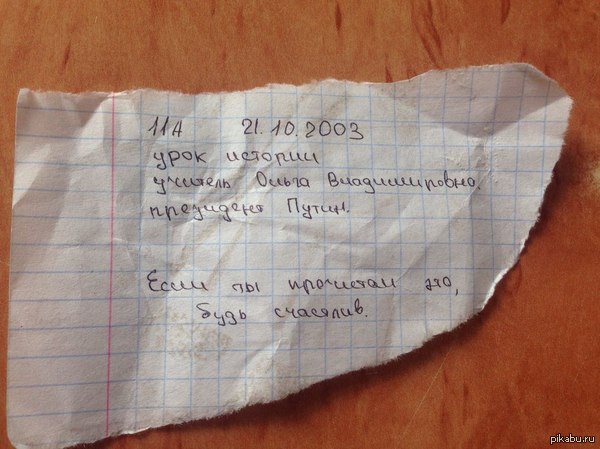 11А 21.10.2003
урок истории
учитель Ольга Владимировна.
президент Путин.
Если ты прочитал это,
будь счастлив.
pikabu.ru